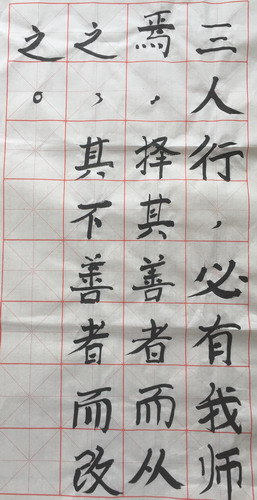 三人行，必有我师
焉，择其善者而从
之，其下善者而改
之。